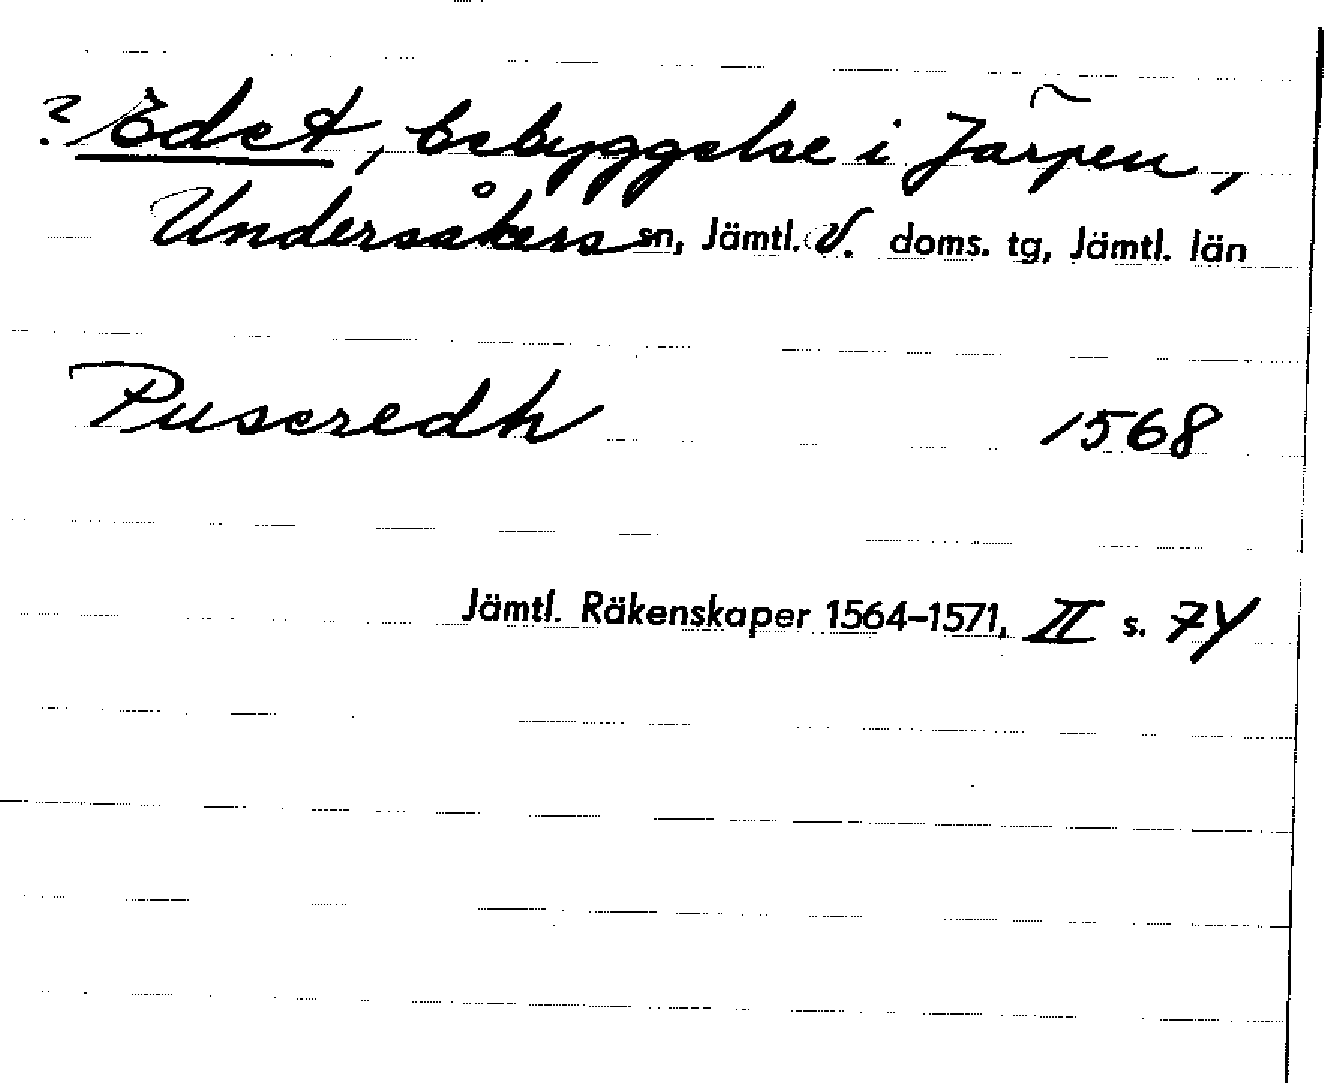 ? Edet, bebyggelse i Järpen,
Undersåkers sn, Jämtl. V. doms. tg, Jämtl. län
Puseredh 1568
Jämtl. Räkenskaper 1564–1571, II s. 74